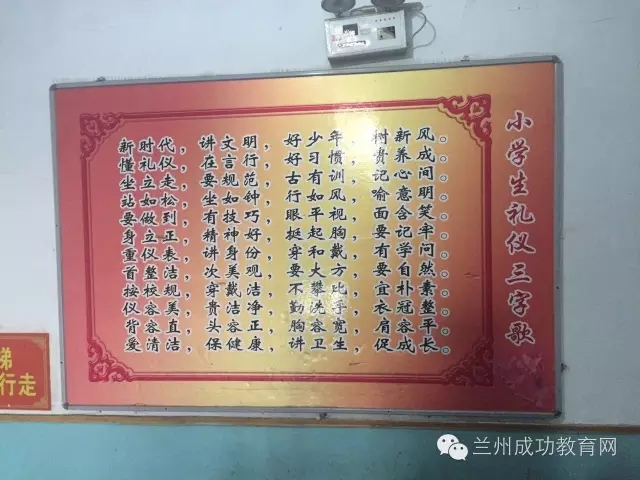 小学生礼仪三字歌
新时代，讲文明，好少年，树新风。
懂礼仪，在言行，好习惯，贵养成。
坐立走，要规范，古有训，记心间。
站如松，坐如钟，行如风，喻意明。
要做到，有技巧，眼平视，面含笑。
身立正，精神好，挺起胸，要记牢。
重仪表，讲身份，穿和戴，有学问。
首整洁，次美观，要大方，要自然。
按校规，穿戴洁，不攀比，宜朴素。
仪容美，贵洁净，勤洗手，衣冠整。
背容直，头容正，胸容宽，肩容平。
爱清洁，保健康，讲卫生，促成长。
梯
行走
兰州成功教育网